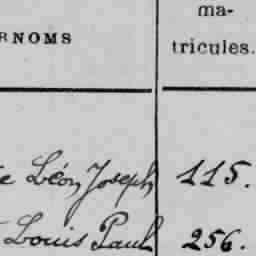 ma-
RNOMS
tricules.
e Léon Joseph 115.
Louis Paul 256.